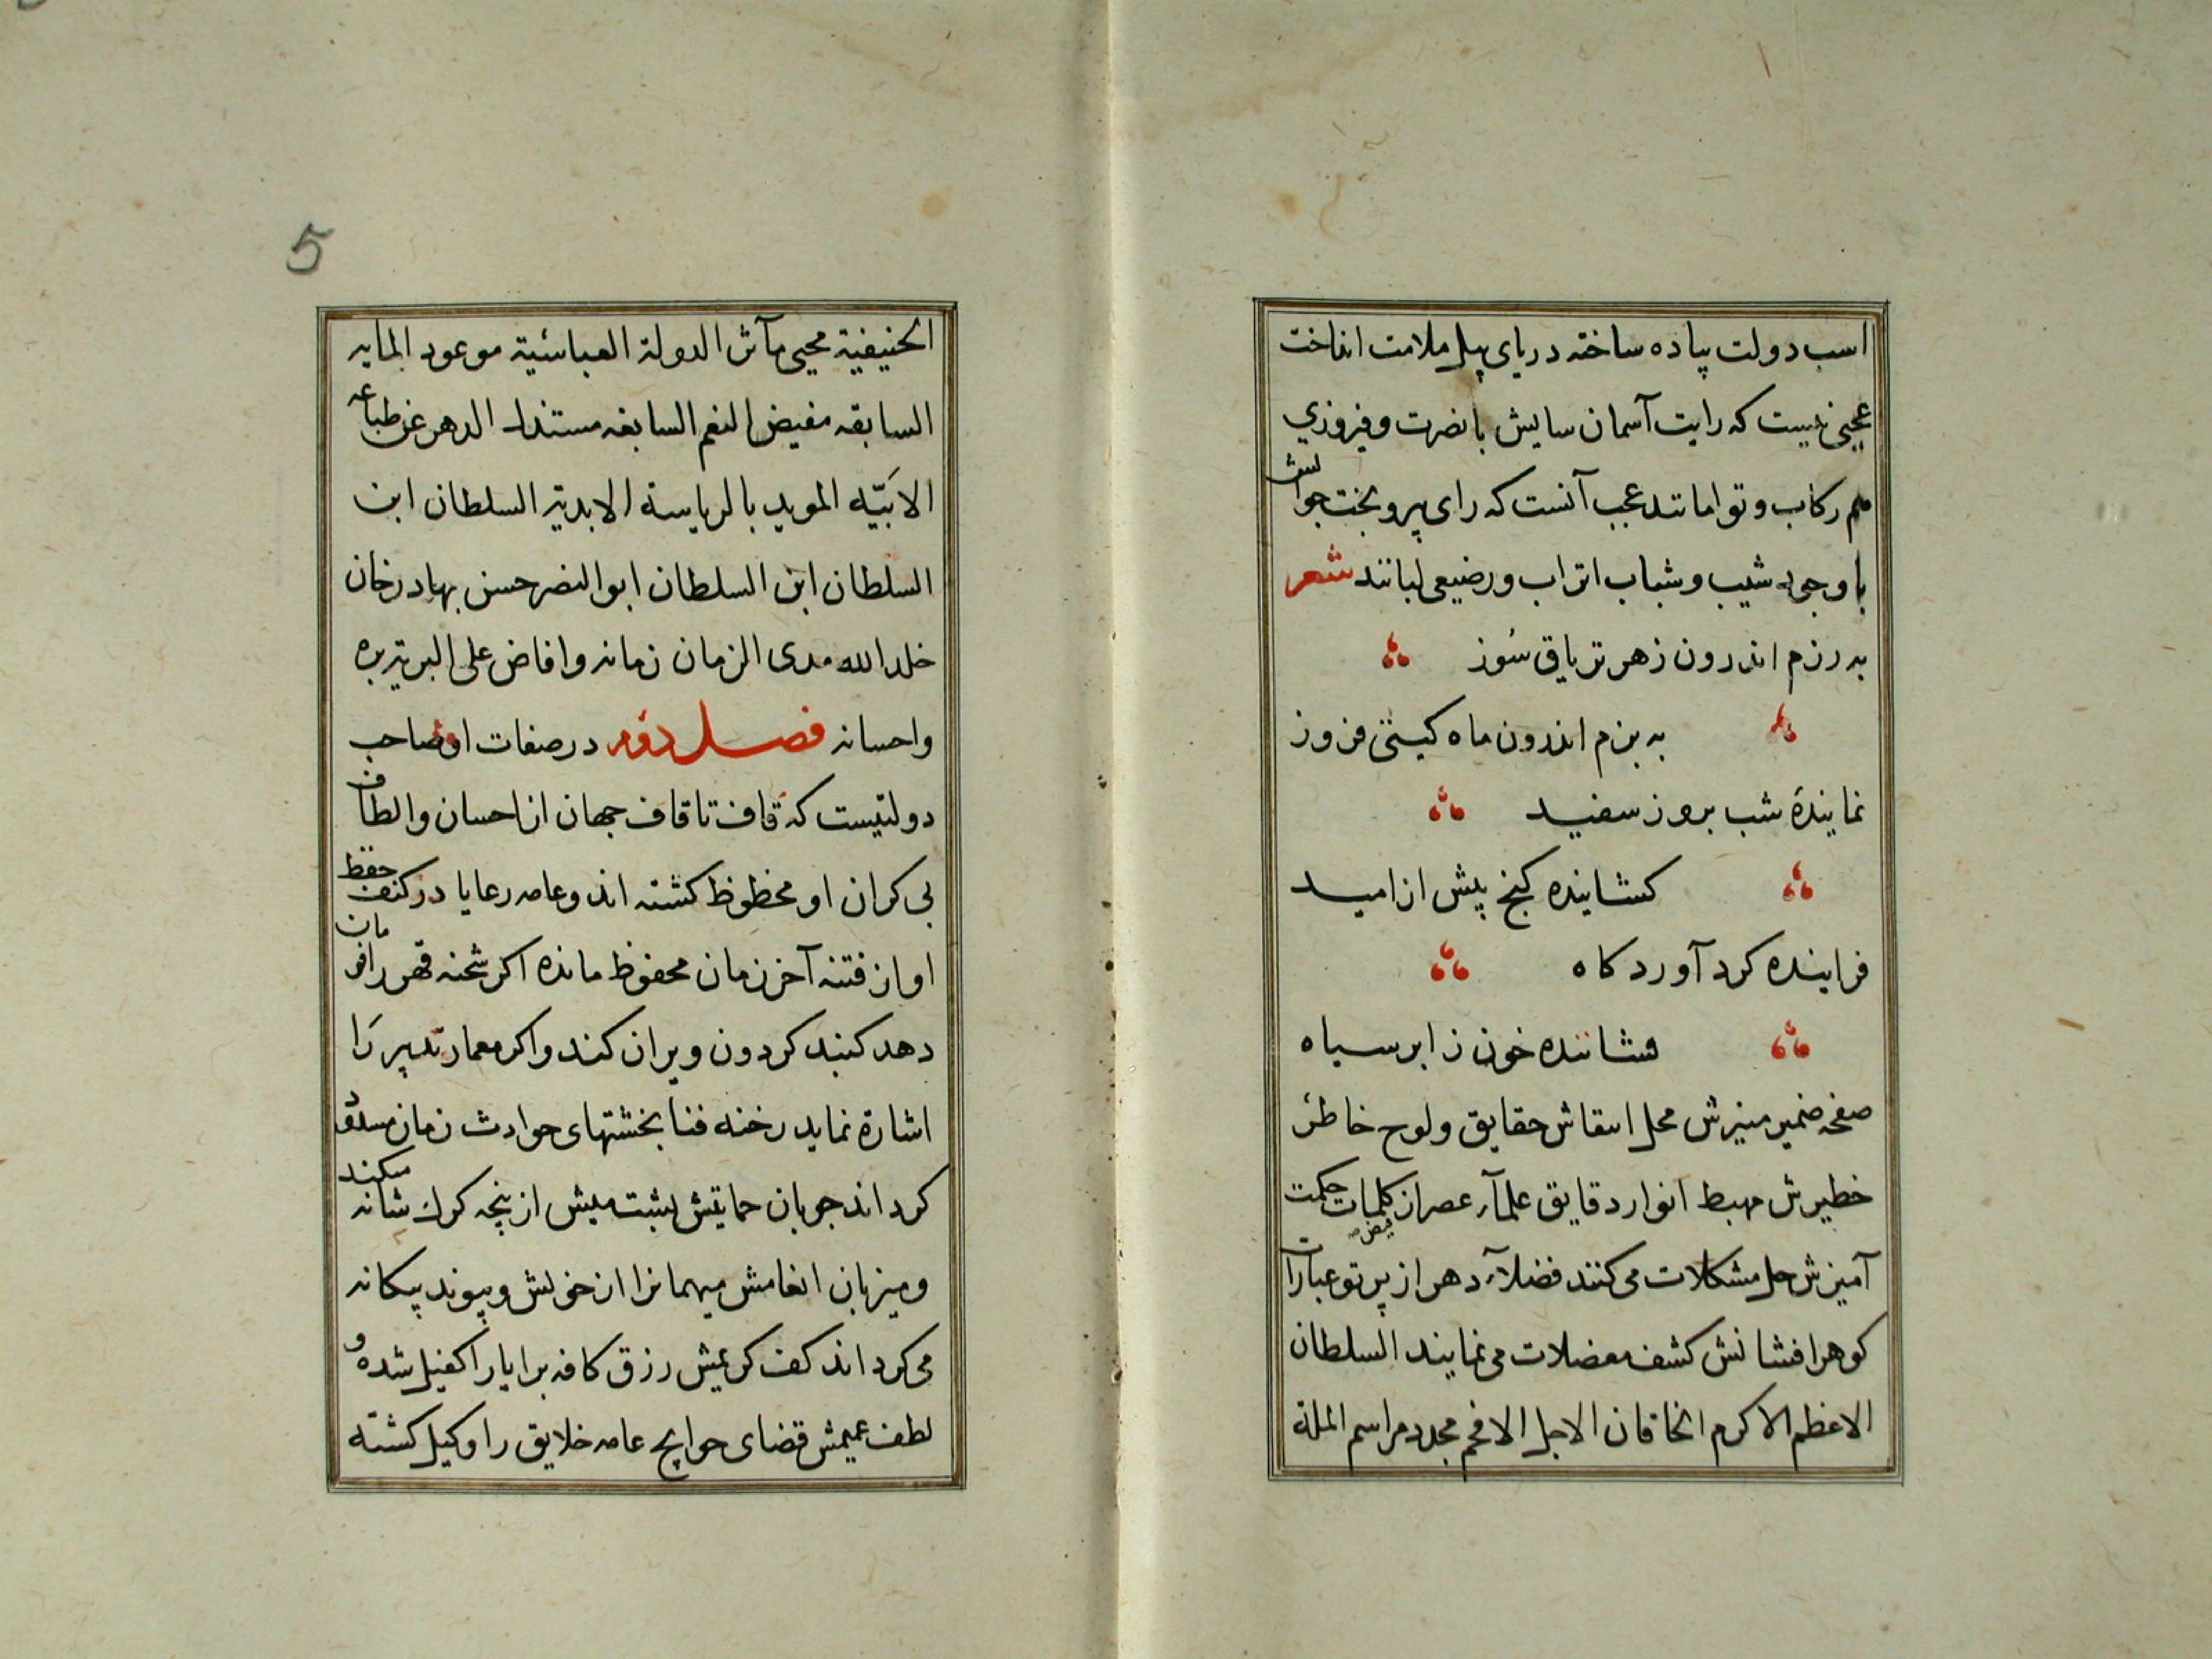 اسب دولت پیاده ساخته در پای پیل ملامت انداخت
عجبی نیست که رایت آسمان سایش با نصرت و فیروزی
هم رکاب و توامانند عجب آنست که رای پیر و بخت جوانش
با وجود شیب و شباب اتراب و رضیعی لبانند شعر
به رزم اندرون زهر تریاق سُوز
به بزم اندرون ماه کیتی فروز
نمایندهٔ شب بروز سفید
کشاینده کنج پیش از امید
فزاینده کرد آوردکاه
فشاننده خون ز ابر سیاه
صفحه ضمیر منیرش محل انتقاش حقایق و لوح خاطر
خطیرش مهبط انوار دقایق علمآء عصر از کلمات حکمت
آمیزش حل مشکلات می کنند فضلآء دهر از پرتو عبارات
کوهر افشانش کشف معضلات می نمایند السلطان
الاعظم الاکرم الخاقان الاجل الافخم مجدد مراسم الملة
5
الحنیفیة محیی مآثر الدولة العباسیة موعود المایه
السابقه مفیض النعم السابغه الدهر عن طباعه
الابَیّه الموید بالریاسة الابدیة السلطان ابن
السلطان ابن السلطان ابو النصر حسن بهادر خان
خلد الله مدی الزمان زمانه و افاض علی البریة بره
و احسانه فصل دوم در صفات او صاحب
دولتیست که قاف تا قاف جهان از احسان و الطاف
بی کران او محظوظ کشته اند و عامه رعایا در کنف حفظ
او از فتنه آخر زمان محفوظ مانده اکر شحنه قهر را فرمان
دهد کنبد کردون ویران کند و اکر معمار تدبیر رَا
اشارة نماید رخنه فنا بخشتهای حوادث زمان مسدود
کرداند جوبان حمایتش پشت میش از پنجه کرك شانه میکند
و میزبان انعامش میهمانرا از خویش و پیوند بیکانه
می کرداند کف کریمش رزق کافه برایا را کفیل شده و
لطف عمیمش قضای حوایج عامه خلایق را وکیل کشته